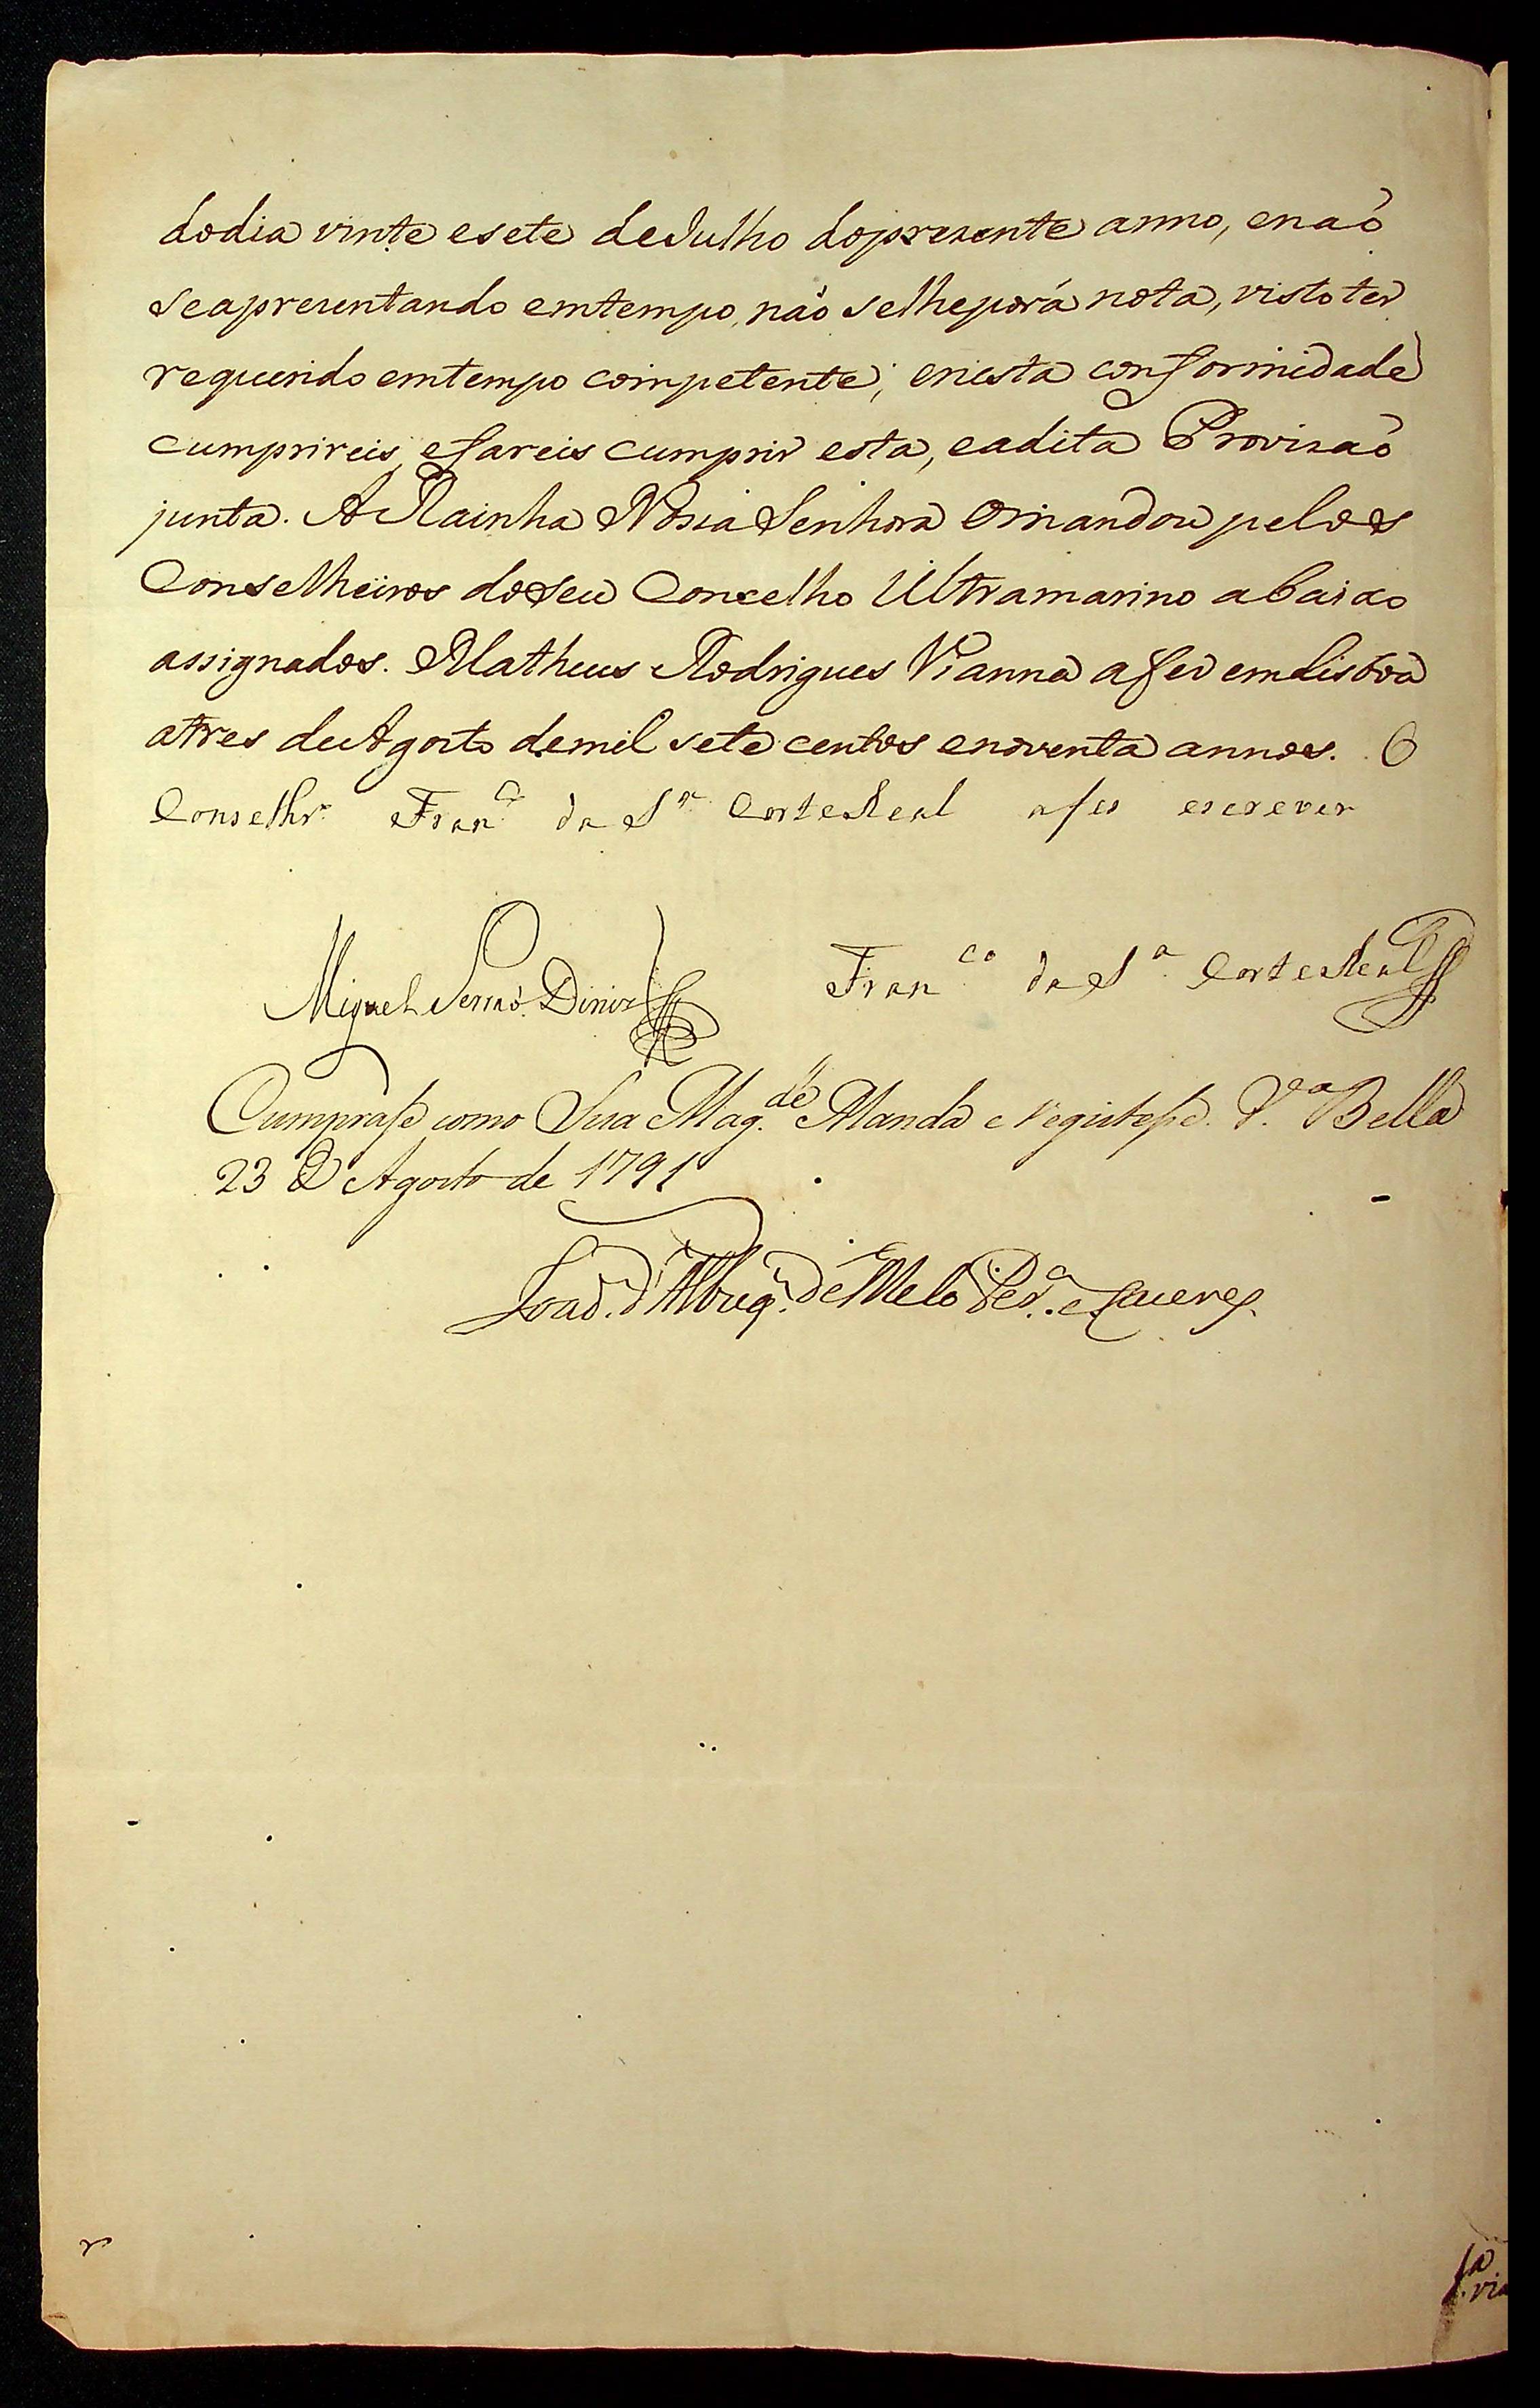 dodia vinte esete deJulho dopresente anno, enaõ
seapresentando emtempo, naõ selheporá nota, visto ter
requerido emtempo competente; enesta conformidade
cumprireis, efareis cumprir esta, eadita Provizaõ
junta. A Rainha Nossa Senhora omandou pelos
Conselheiros doseu Concelho Ultramarino abaixo
assignados. Matheus Rodrigues Vianna afez emLisboa
atres deAgosto demil sete centos enoventa annos. O
Conselhr.º Fran.co da S.a CorteReal afes escrever
Miguel Serraõ Diniz Fran.co da S.a CorteReal
Cumprase como Sua Mag.de Manda e registese. V.a Bella
23 D Agosto de 1791
Joaõ d'Albuq. de Melo Per.a e Caceres
r